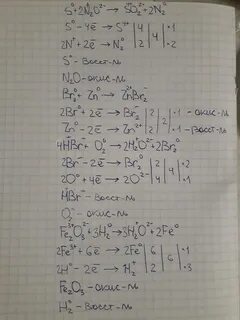 S⁰+2N₂⁺O²⁻ → S⁺⁴O₂²⁻+2N₂⁰
S⁰-4e̅ → S⁺⁴ | 4 | 4 | ·1
2N⁺+2e̅ → N₂⁰ | 2 | | ·2
S⁰-восст-ль
N₂O-окис-ль
Br₂⁰+Zn⁰ → Zn²⁺Br₂⁻
2Br⁰+2e̅ → Br₂⁻ | 2 | 2 | ·1 -окис-ль
Zn⁰-2e̅ → Zn²⁺ | 2 | | ·1 -восст-ль
4HBr+O₂⁰ → 2H₂O²⁻+2Br₂⁰
2Br⁻-2e̅ → Br₂⁰ | 2 | 4 | ·2
2O⁰+4e̅ → 2O²⁻ | 4 | | ·1
HBr⁻-восст-ль
O₂⁰-окис-ль
Fe₂³⁺O₃²⁻+3H₂⁰ → 3H₂⁺O²⁻+2Fe⁰
2Fe³⁺+6e̅ → 2Fe⁰ | 6 | 6 | ·1
2H⁰-2e̅ → H₂⁺ | 2 | | ·3
Fe₂O₃-окис-ль
H₂⁰-восст-ль